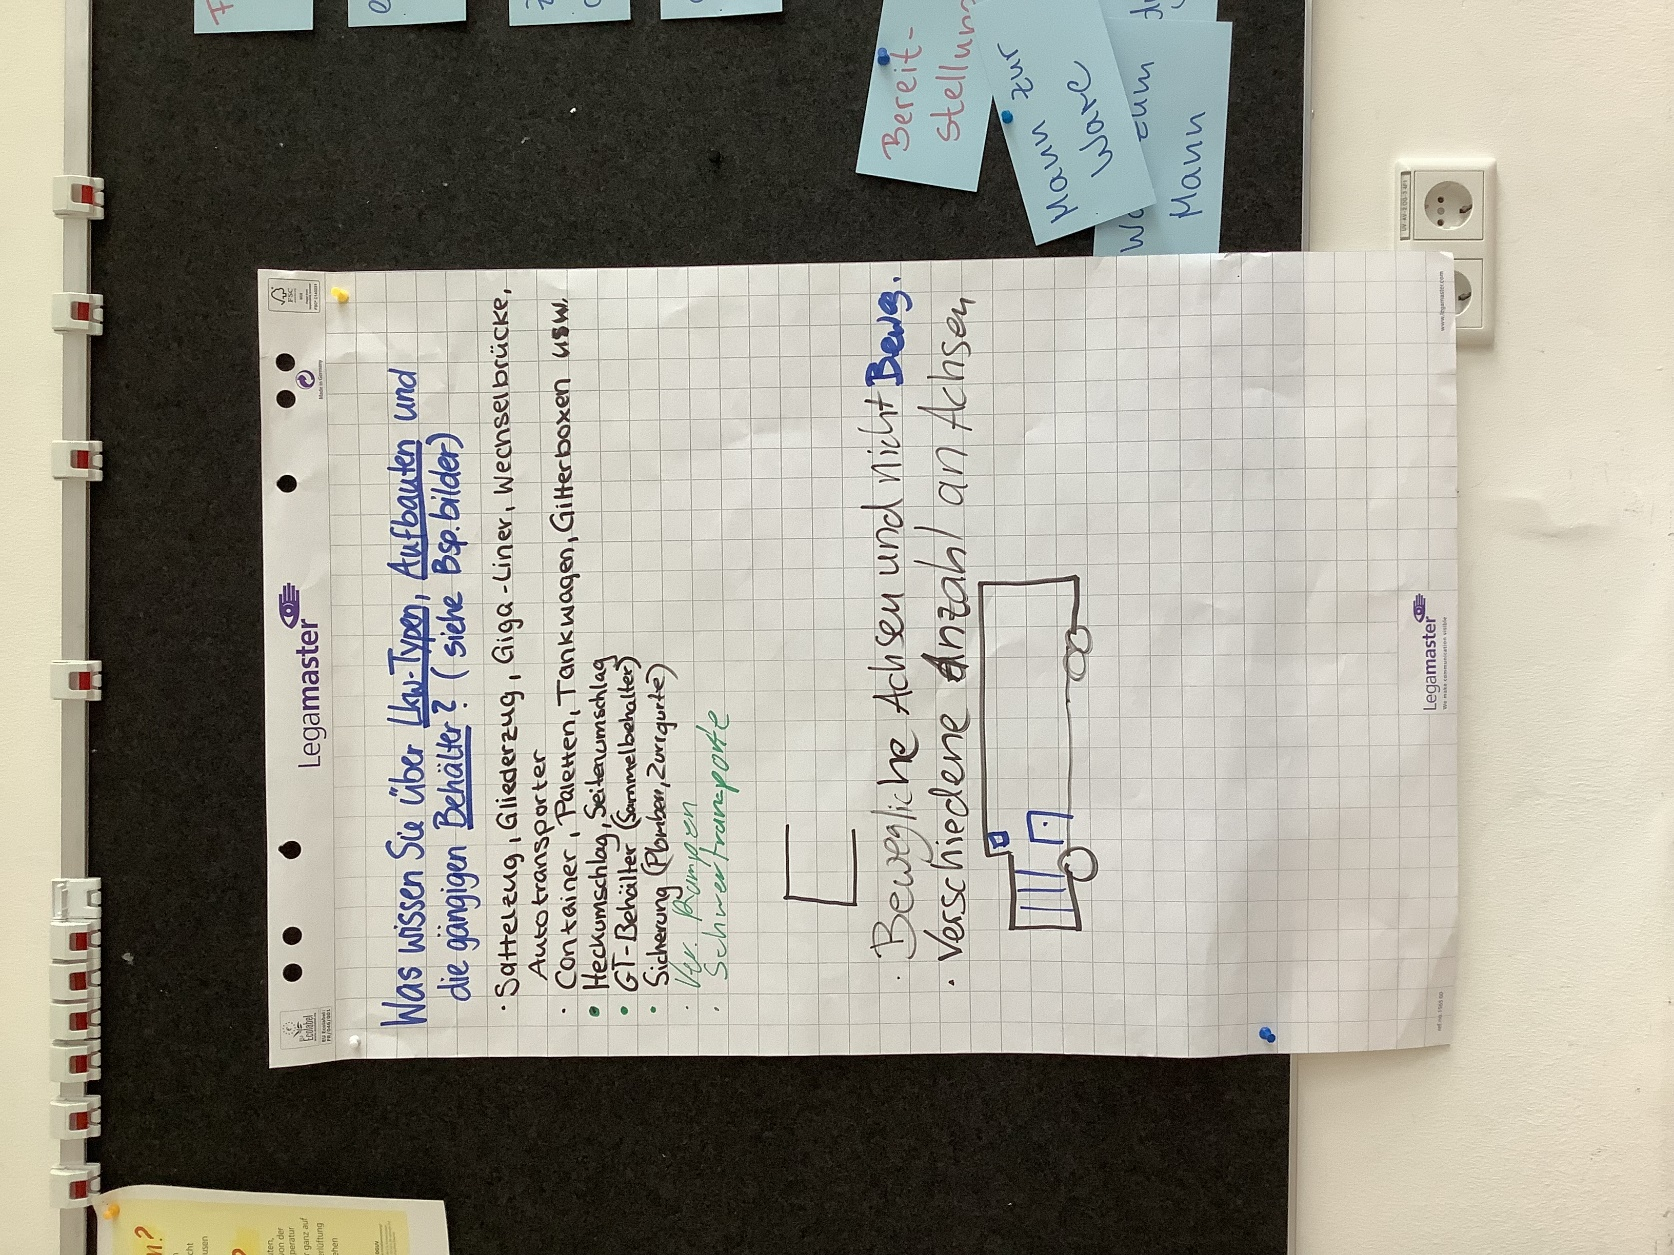 Legamaster
Was wissen Sie über Lkw-Typen, Aufbauten und
die gängigen Behälter? (siehe Bsp.bilder)
· Sattelzug, Gliederzug, Giga-Liner, Wechselbrücke,
Autotransporter
· Container, Paletten, Tankwagen, Gitterboxen usw.
• Heckumschlag, Seitenumschlag
• GT-Behälter (Sammelbehälter)
• Sicherung (Plomben, Zurrgurte)
· Ver. Rampen
· Schwertransporte
· Bewegliche Achsen und nicht Beweg.
· Verschiedene Anzahl an Achsen
Legamaster
We make communication visible
www.legamaster.com
Made in Germany
FSC
Ecolabel
Bereit-
stellung
Mann zur
Ware
zum
Mann